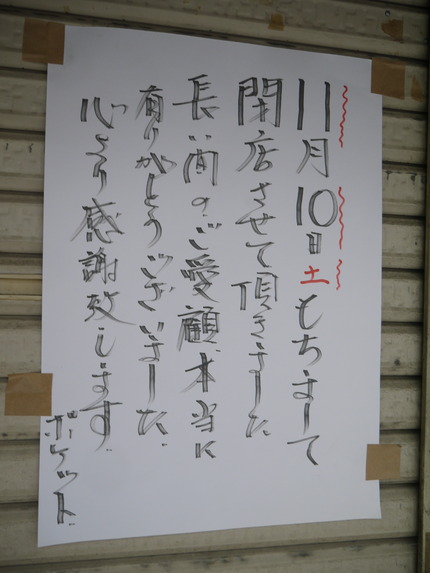 11月10日土もちまして
閉店させて頂きました
長い間のご愛顧本当に
有りがとうございました
心より感謝致します
ポケット